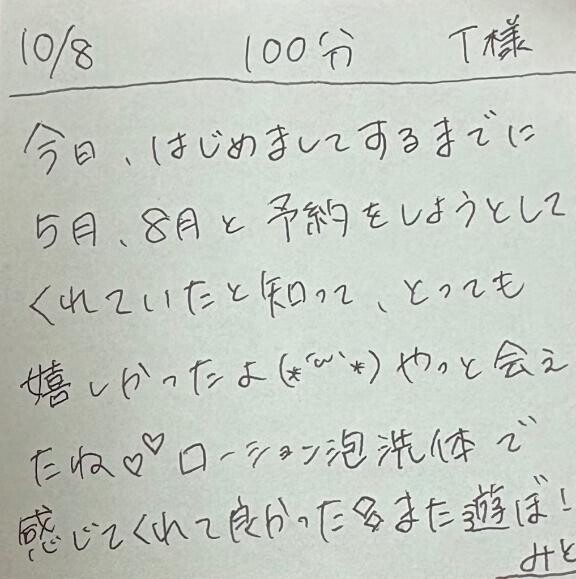 10/8 100分 T様
今日、はじめましてするまでに
5月、8月と予約をしようとして
くれていたと知って、とっても
嬉しかったよ(*´ω`*)やっと会え
たね♡♡ローション泡洗体で
感じてくれて良かった また遊ぼ!
みと